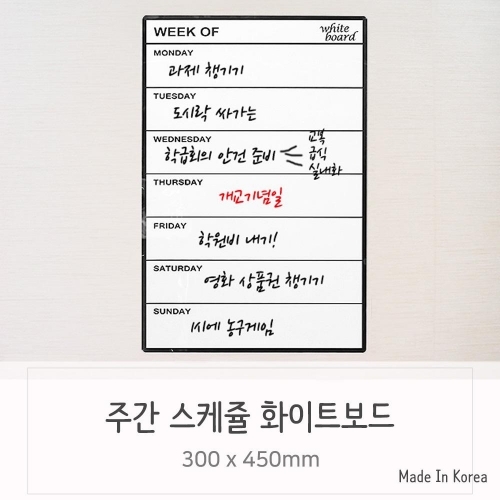 WEEK OF
white
board
MONDAY
과제 챙기기
TUESDAY
도시락 싸가는
WEDNESDAY
학급회의 안건 준비
교복
급식
실내화
THURSDAY
개교기념일
FRIDAY
학원비 내기!
SATURDAY
영화 상품권 챙기기
SUNDAY
1시에 농구게임
주간 스케쥴 화이트보드
300 x 450mm
Made In Korea